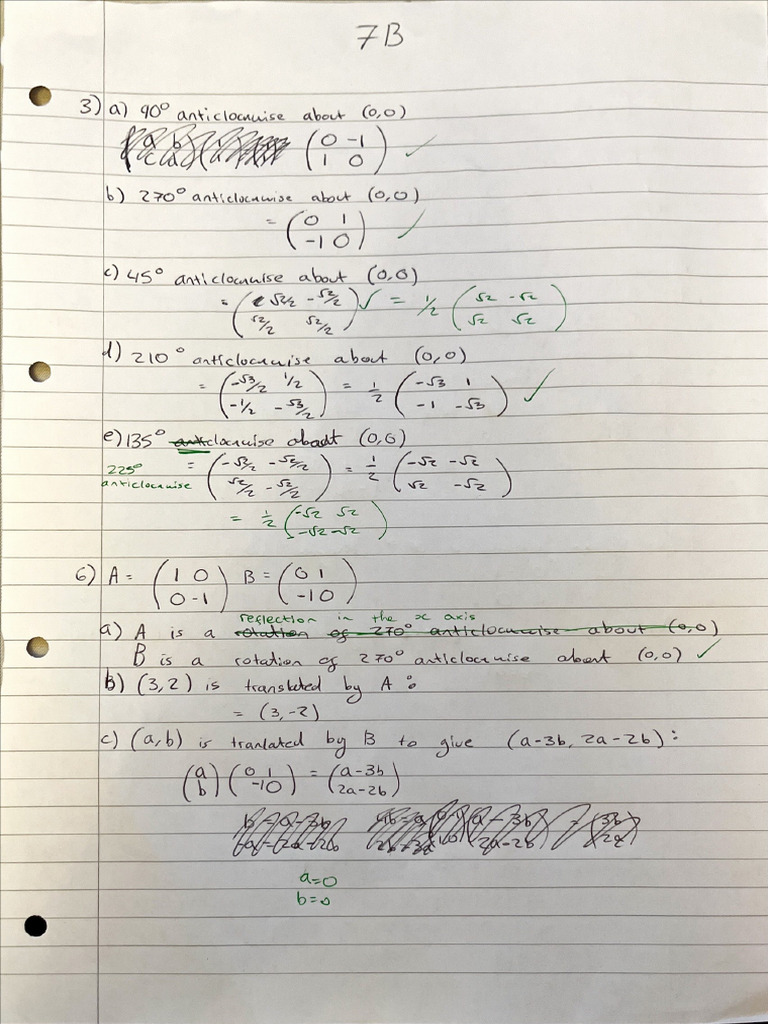 7B
3) a) 90° anticlockwise about (0,0)
(0 -1
1 0) ✓
b) 270° anticlockwise about (0,0)
= (0 1
-1 0) ✓
c) 45° anticlockwise about (0,0)
= (√2/2 -√2/2
√2/2 √2/2) ✓ = 1/2 (√2 -√2
√2 √2)
d) 210° anticlockwise about (0,0)
= (-√3/2 1/2
-1/2 -√3/2) = 1/2 (-√3 1
-1 -√3) ✓
e) 135° anticlockwise about (0,0)
225° anticlockwise
= (-√2/2 -√2/2
√2/2 -√2/2) = 1/2 (-√2 -√2
√2 -√2)
= 1/2 (-√2 √2
-√2 -√2)
6) A = (1 0
0 -1) B = (0 1
-1 0)
reflection in the x axis
a) A is a rotation of 270° anticlockwise about (0,0)
B is a rotation of 270° anticlockwise about (0,0) ✓
b) (3,2) is translated by A:
= (3,-2)
c) (a,b) is tranlated by B to give (a-3b, 2a-2b):
(a
b) (0 1
-1 0) = (a-3b
2a-2b)
a=0
b=0